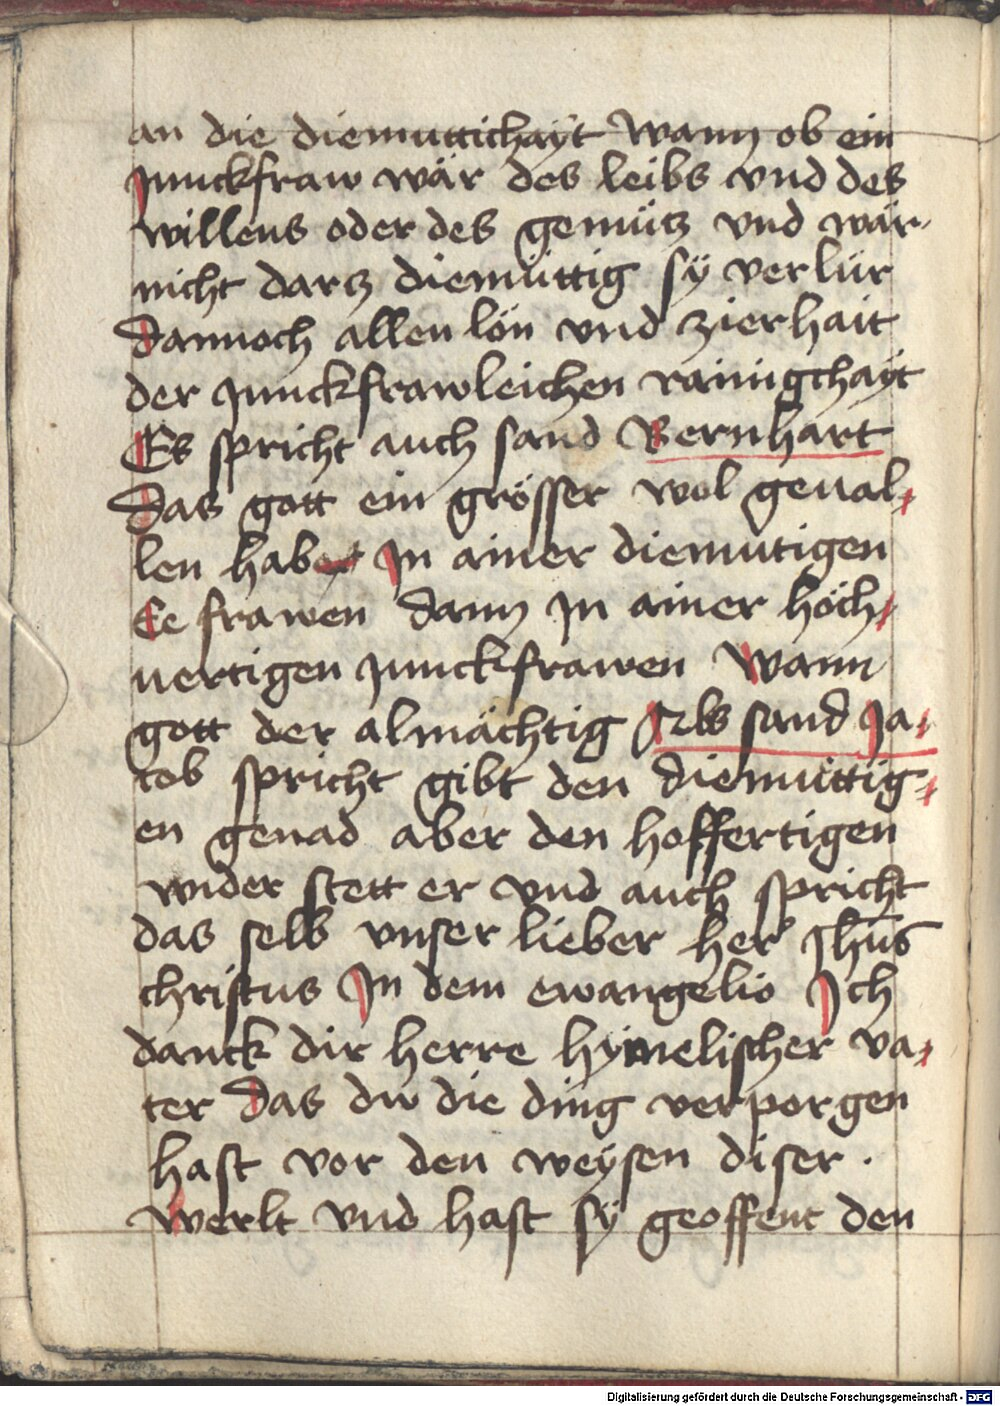 an die diemuttichayt wann ob ein
Junckfraw wär des leibs vnd des
willens oder des gemütz vnd wär
nicht dartz diemüttig sÿ verlür
dannoch allen lön vnd zierhait
der Junckfrawleichen rainigchayt
Es spricht auch sand Bernhart
das gott ein grösser wol geual-
len hab In ainer diemutigen
Ee frawen dann Jn ainer höch-
uertigen Junckfrawen Wann
gott der almächtig Als sand Ja-
cob spricht gibt den diemüttig-
en genad aber den hoffertigen
wider stett er vnd auch spricht
das selb vnser lieber her Jhus
christus In dem ewangelio Ich
danck dir herre hymelischer va-
ter das dw die ding verporgen
hast vor den weÿsen diser .
werlt vnd hast sÿ geoffent den
Digitalisierung gefördert durch die Deutsche Forschungsgemeinschaft - DFG